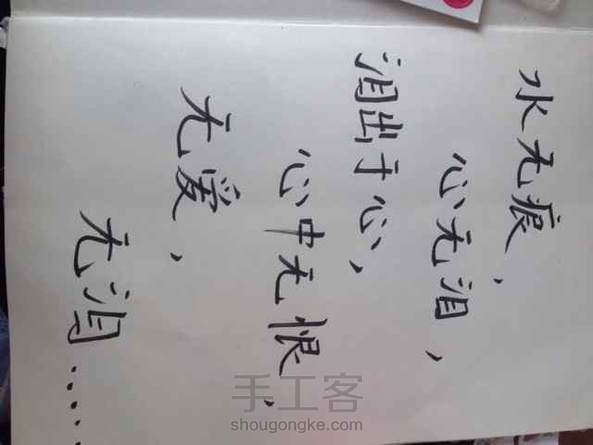 水无痕，
心无泪，
泪出于心，
心中无恨，
无爱，
无泪……
手工客
shougongke.com